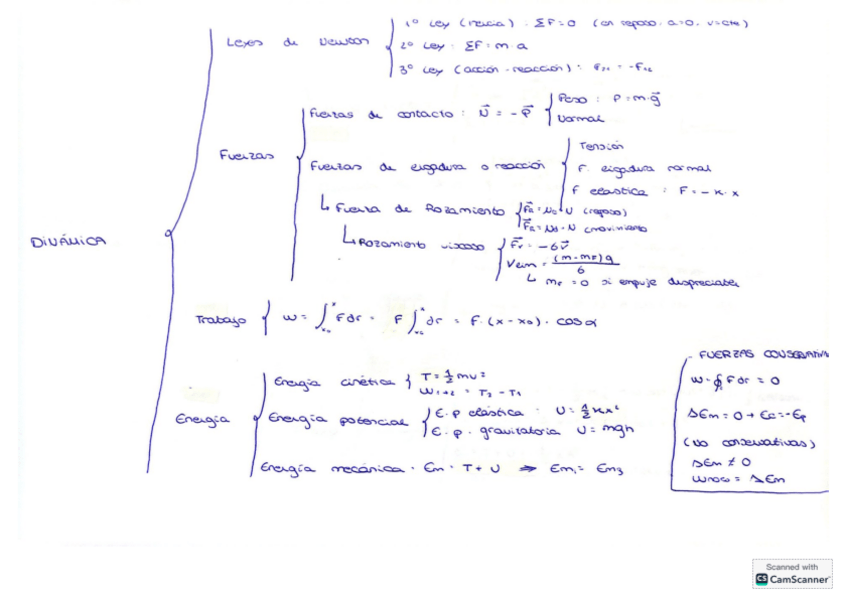 DINÁMICA
Leyes de Newton
1º Ley (inercia) · ΣF=0 (en reposo, a=0, v=cte)
2º Ley · ΣF=m·a
3º Ley (acción-reacción):
Fuerzas
Fuerzas de contacto: N⃗ = -P⃗
Peso: P=m·g⃗
Normal
Fuerzas de ligadura o reacción
Tensión
F. ligadura normal
F elastica: F=-K·x
↳ Fuerza de Rozamiento
(reposo)
(movimiento)
↳ Rozamiento viscoso
F⃗r = -6v⃗
Vlim = (m-mF)g / 6
↳ mF = 0 si empuje despreciable
Trabajo
W = ∫ F dr = F ∫ dr = F·(x-x₀)·cosα
Energía
Energía cinética
T = ½mv²
W1→2 = T2 - T1
Energía potencial
E.p elástica · U=½Kx²
E.p. gravitatoria U=mgh
Energía mecánica · Em = T+U ⇒ Em1 = Em2
- FUERZAS CONSERVATIVA
W=∮ F dr = 0
ΔEm=0 → Ec=-Ep
(no conservativas)
ΔEm ≠ 0
Wnoco = ΔEm
Scanned with
CS CamScanner